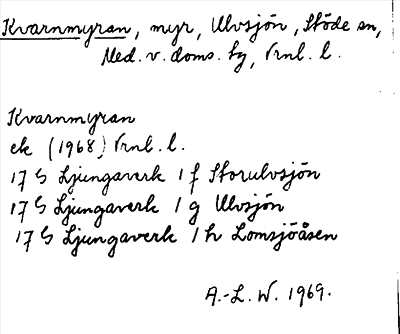 Kvarnmyran, myr, Ulvsjön, Stöde sn,
Med. v. doms. hg, Vrnl. l.
Kvarnmyran
ek (1968) Vrnl. l.
17 G Ljungaverk 1 f Storulvsjön
17 G Ljungaverk 1 g Ulvsjön
17 G Ljungaverk 1 h Lomsjöåsen
A.-L. W. 1969.